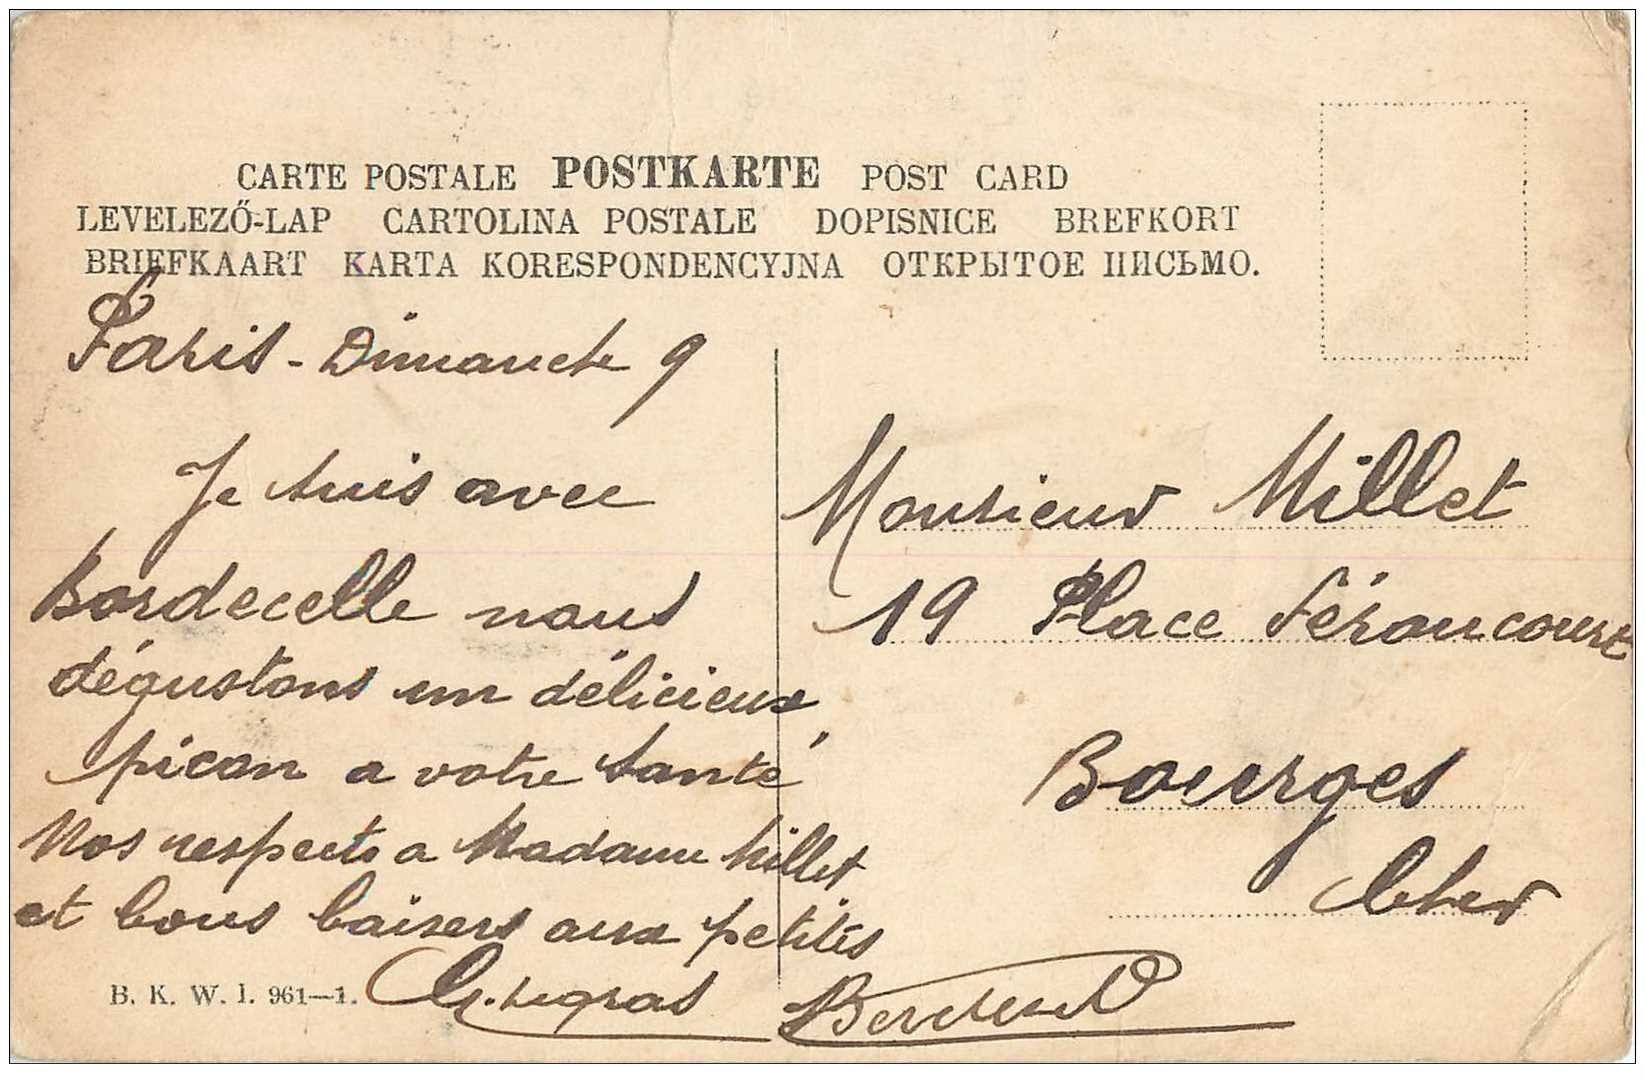 CARTE POSTALE POSTKARTE POST CARD
LEVELEZŐ-LAP CARTOLINA POSTALE DOPISNICE BREFKORT
BRIEFKAART KARTA KORESPONDENCYJNA ОТКРЫТОЕ ПИСЬМО.
Paris - Dimanche 9
Je suis avec
Bordecelle nous
dégustons un délicieux
picon a votre santé
Nos respects a Madame Millet
et bons baisers aux petités
Monsieur Millet
19 Place Séraucourt
Bourges
Cher
B. K. W. I. 961—1.